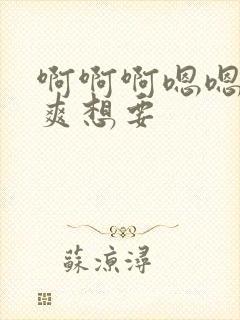 啊啊啊嗯嗯
爽想要
蘇涼潯